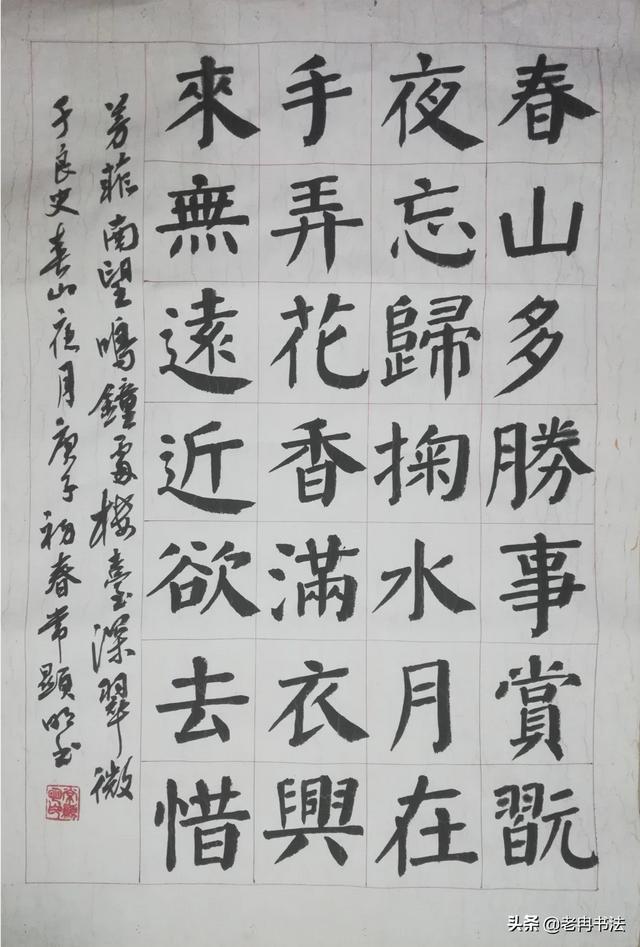 春山多勝事賞翫
夜忘歸掬水月在
手弄花香滿衣興
來無遠近欲去惜
芳菲南望鳴鐘處樓臺深翠微
于良史春山夜月庚子初春常顯明书
头条 @老冉书法